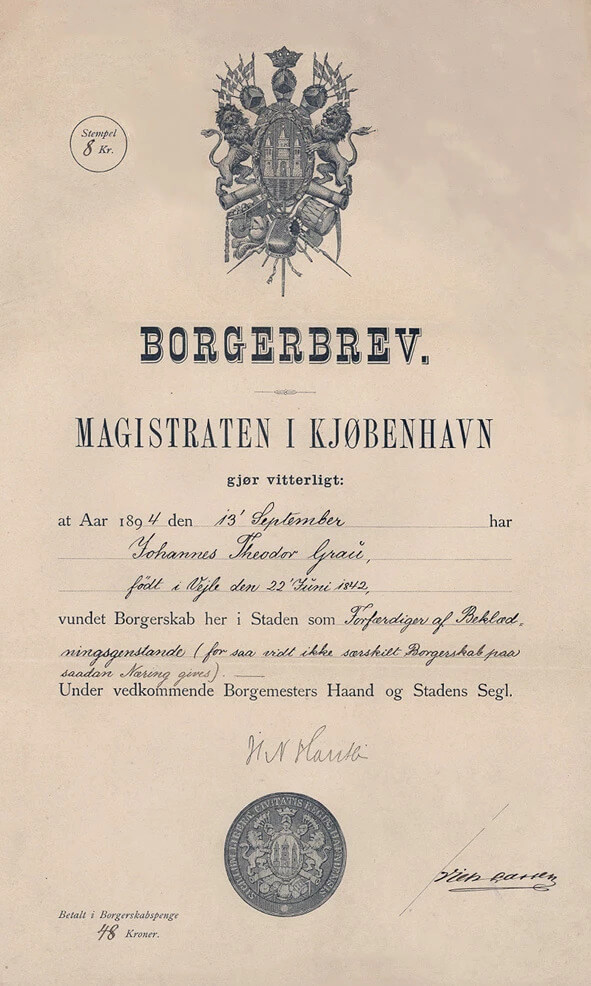 Stempel
8 Kr.
BORGERBREV.
MAGISTRATEN I KJØBENHAVN
gjør vitterligt:
at Aar 1894 den 13' September har
Johannes Theodor Graü,
født i Vejle den 22' Juni 1842,
vundet Borgerskab her i Staden som Forfærdiger af Beklæd-
ningsgenstande (for saa vidt ikke særskilt Borgerskab paa
saadan Næring gives).
Under vedkommende Borgemesters Haand og Stadens Segl.
Betalt i Borgerskabspenge
48 Kroner.